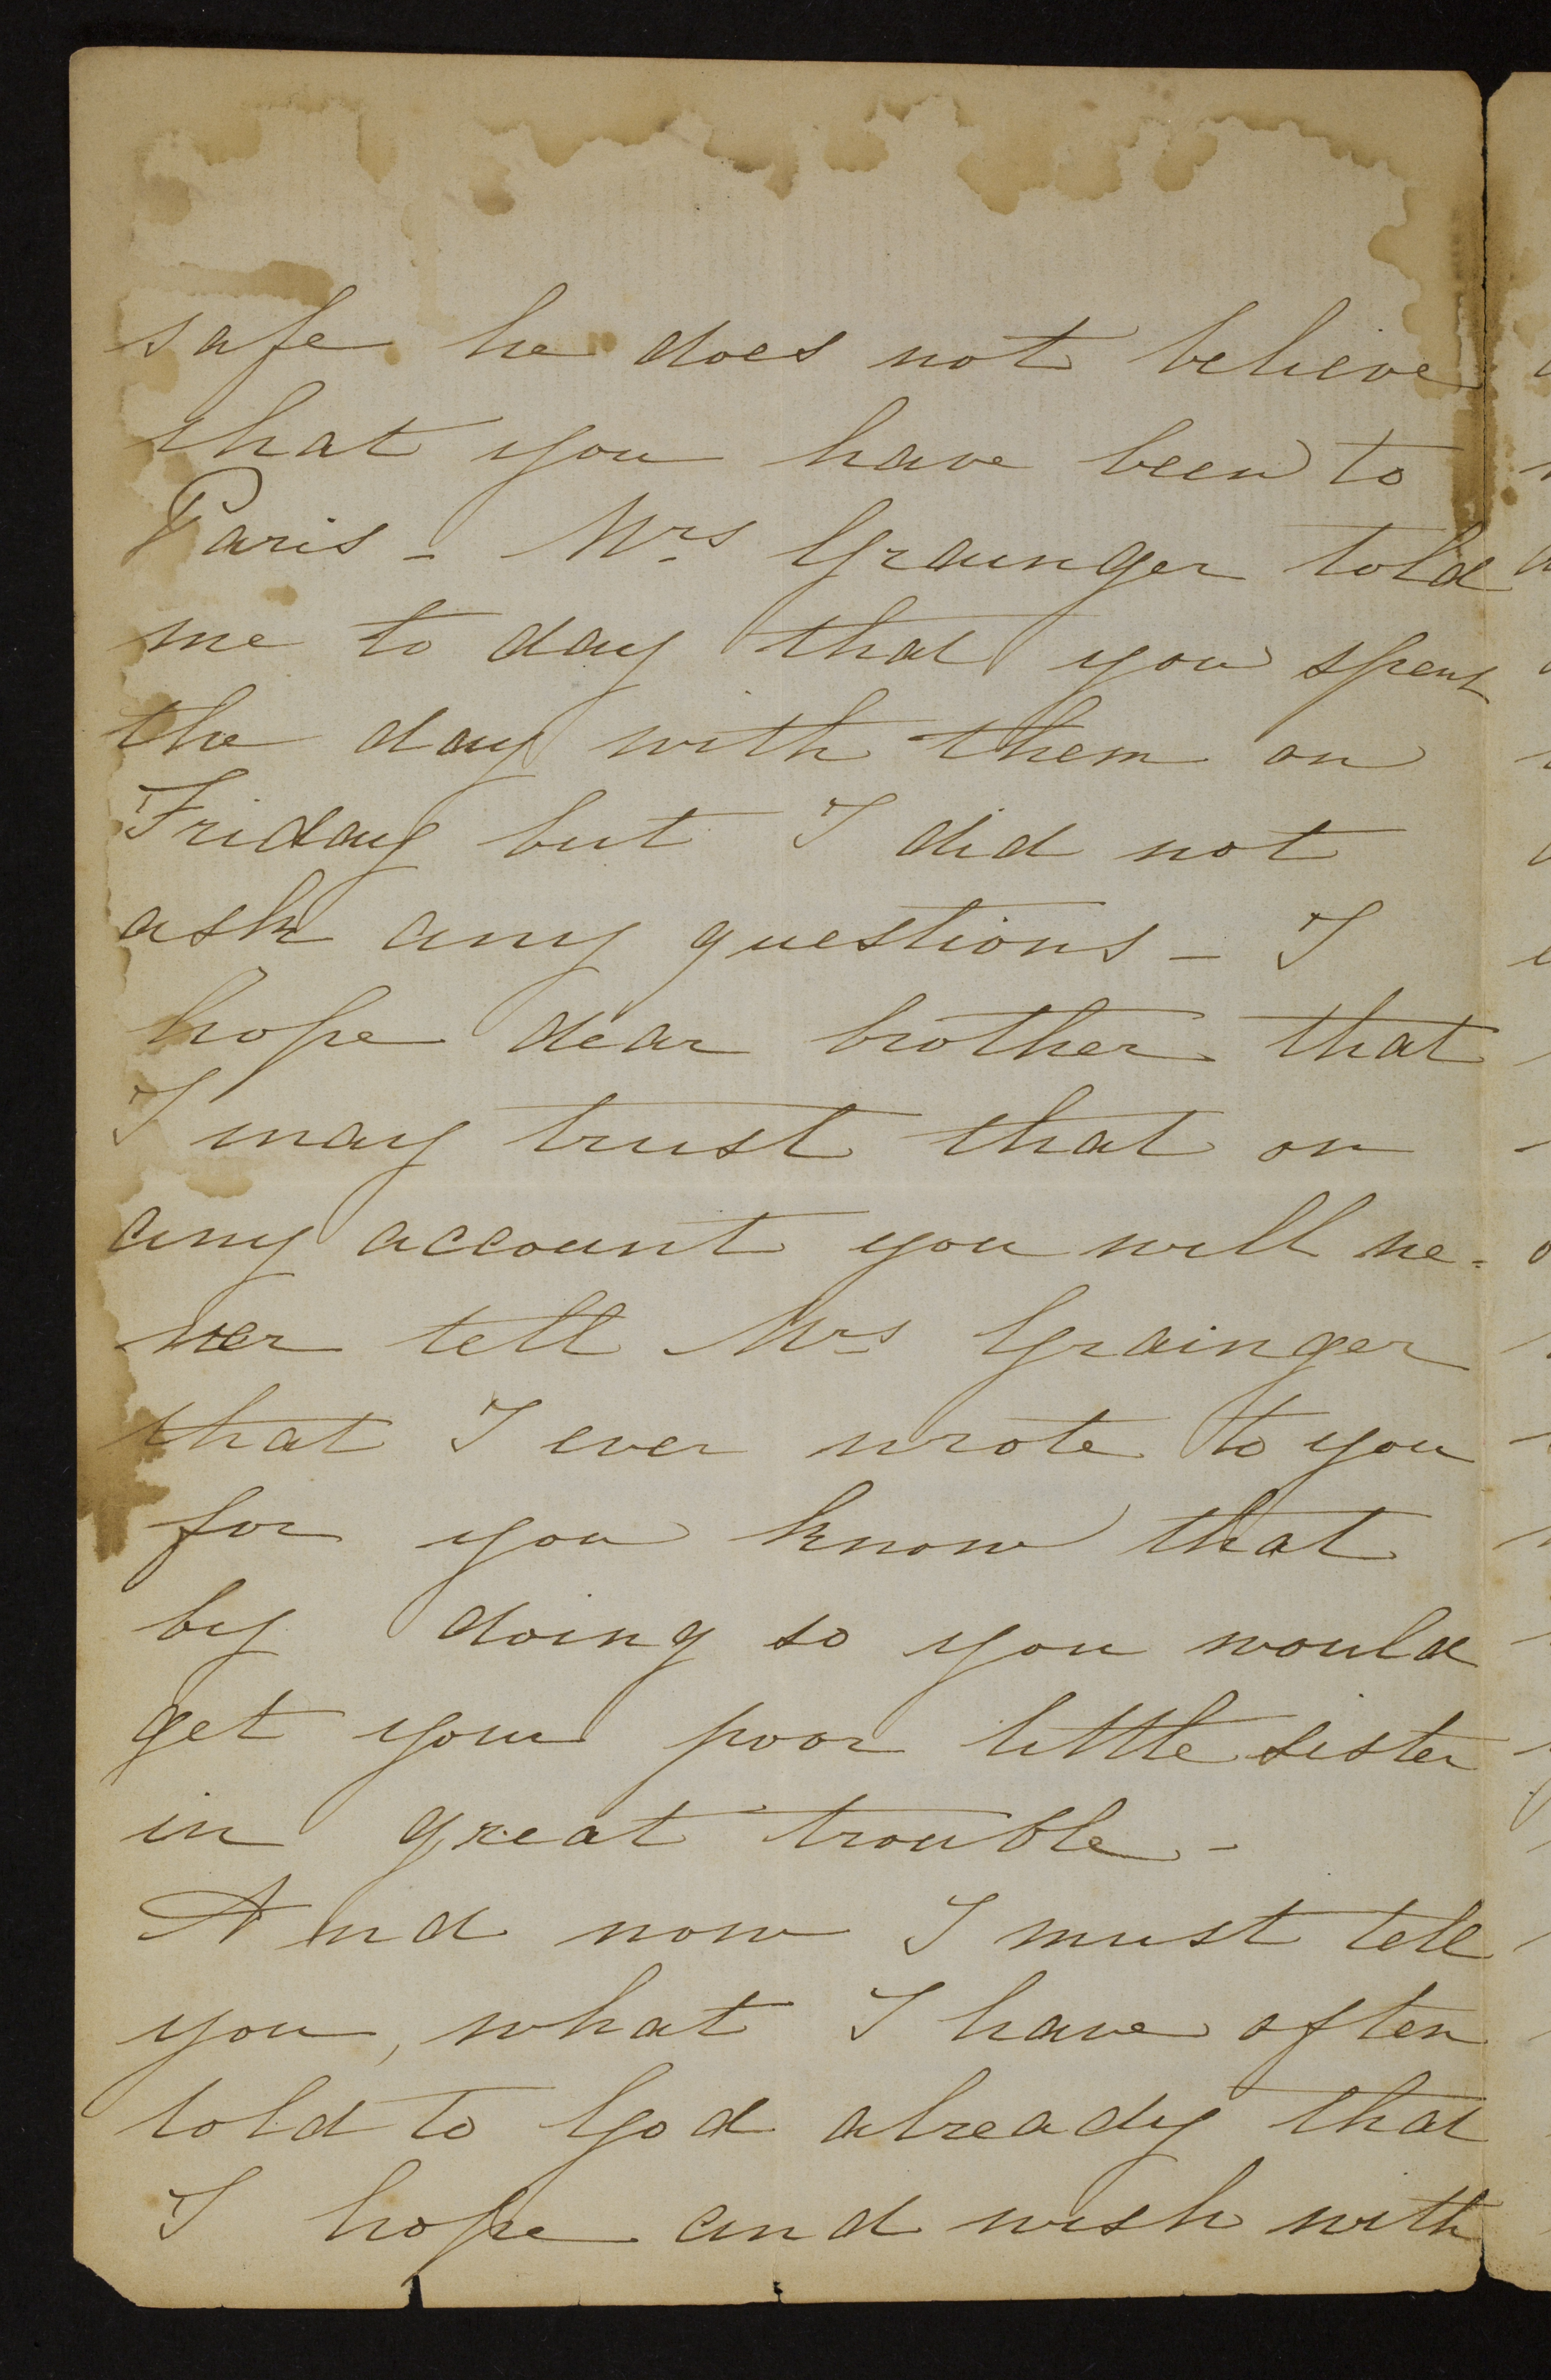 safe he does not believe
that you have been to
Paris - Mrs Grainger told
me to day that you spent
the day with them on
Friday but I did not
ask any questions - I
hope dear brother that
I may trust that on
any account you will ne=
ver tell Mrs Grainger
that I ever wrote to you
for you know that
by doing so you would
get your poor little sister
in great trouble -
And now I must tell
you, what I have often
told to God already that
I hope and wish with